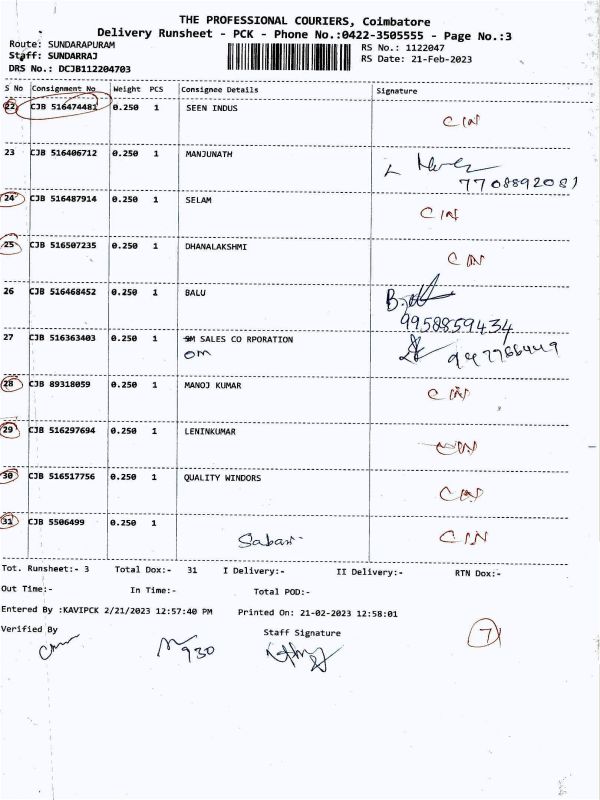 THE PROFESSIONAL COURIERS, Coimbatore
Delivery Runsheet - PCK - Phone No.:0422-3505555 - Page No.:3
Route: SUNDARAPURAM RS No.: 1122047
Staff: SUNDARRAJ RS Date: 21-Feb-2023
DRS No.: DCJB112204703
S No Consignment No Weight PCS Consignee Details Signature
22 CJB 516474481 0.250 1 SEEN INDUS CIN
23 CJB 516406712 0.250 1 MANJUNATH
7708892081
24 CJB 516487914 0.250 1 SELAM CIN
25 CJB 516507235 0.250 1 DHANALAKSHMI CIN
26 CJB 516468452 0.250 1 BALU
9958859434
27 CJB 516363403 0.250 1 SM SALES CO RPORATION
OM
28 CJB 89318059 0.250 1 MANOJ KUMAR CIN
29 CJB 516297694 0.250 1 LENINKUMAR CIN
30 CJB 516517756 0.250 1 QUALITY WINDORS CIN
31 CJB 5506499 0.250 1 CIN
Sabari
Tot. Runsheet:- 3 Total Dox:- 31 I Delivery:- II Delivery:- RTN Dox:-
Out Time:- In Time:- Total POD:-
Entered By :KAVIPCK 2/21/2023 12:57:40 PM Printed On: 21-02-2023 12:58:01
Verified By Staff Signature 7
930